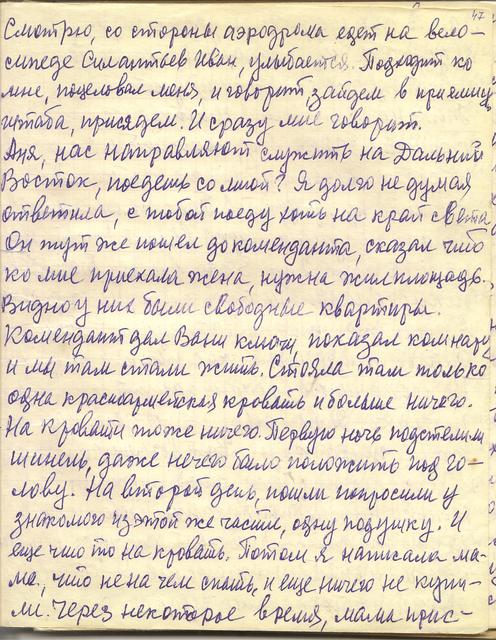 47
Смотрю, со стороны аэродрома едет на вело-
сипеде Силантьев Иван, улыбается. Подходит ко
мне, поцеловал меня, и говорит, зайдем в приемную
штаба, присядем. И сразу мне говорит.
Аня, нас направляют служить на Дальний
Восток, поедешь со мной? Я долго не думая
ответила, с тобой поеду хоть на край света
Он тут же пошел до коменданта, сказал что
ко мне приехала жена, нужна жилплощадь.
Видно у них были свободные квартиры.
Комендант дал Вани ключ, показал комнату
и мы там стали жить. Стояла там только
одна красноармейская кровать и больше ничего.
На кровати тоже ничего. Первую ночь подстелили
шинель, даже нечего было положить под го-
лову. На второй день, пошли попросили у
знакомого из этой же части, одну подушку. И
еще что то на кровать. Потом я написала ма-
ме, что не на чем спать, и еще ничего не купи-
ли. Через некоторое время, мама прис-